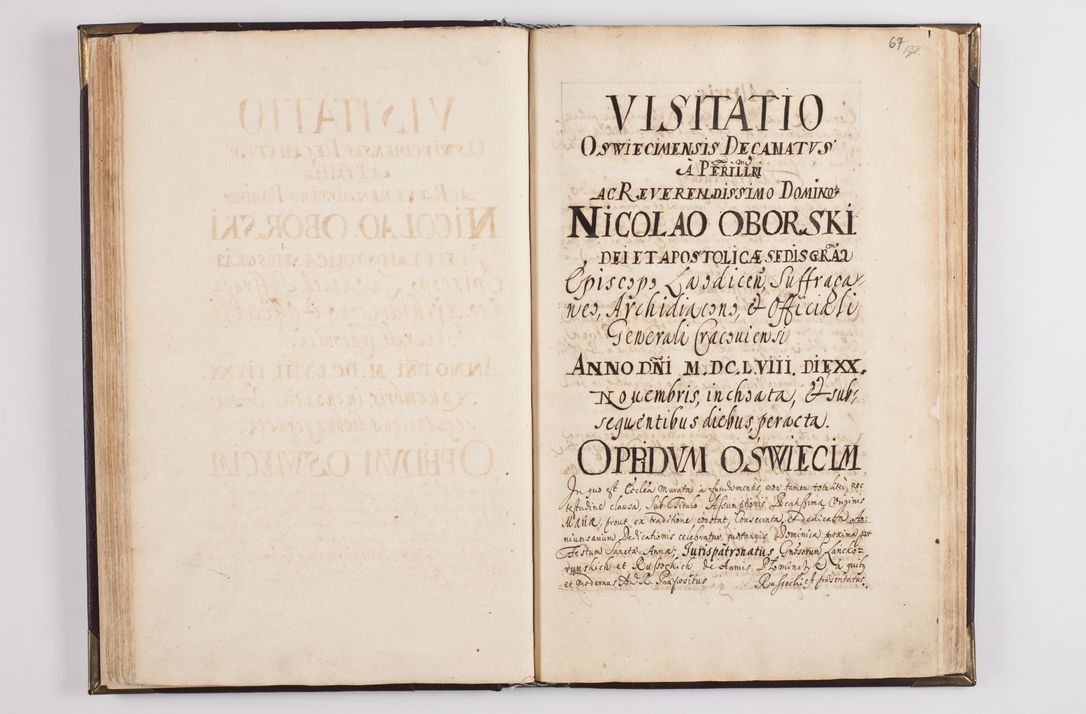 67
198.
VISITATIO
OSWIECIMENSIS DECANATVS
À PERILLRI
AC REVERENDISSIMO DOMINO
NICOLAO OBORSKI
DEI ET APOSTOLICÆ SEDIS GRÃA
Episcopo Laodiceñ, Suffraga-
neo, Archidiacono, & Officiali
Generali Cracoviensi
ANNO DÑI M.DC.LVIII. DIE XX.
Novembris, inchoata, & sub-
sequentibus diebus, peracta.
OPPIDVM OSWIECIM
In quo est Ecclẽa murata à fundamentis, non tamen tota, nec
testudine clausa, Sub Titulo Assumptionis Beatissimæ Virginis
MARIÆ, prout ex traditione constat, Consecrata, et dedicata. An-
niversarium Dedicationis celebratur quotannis Dominica proxima post
Festum Sanctæ Annæ, Jurispatronatus Gnosorum Lancko-
runskich et Russockich de Armis à quibus
et modernus A.R. Præpositus Russockich præsentatus.